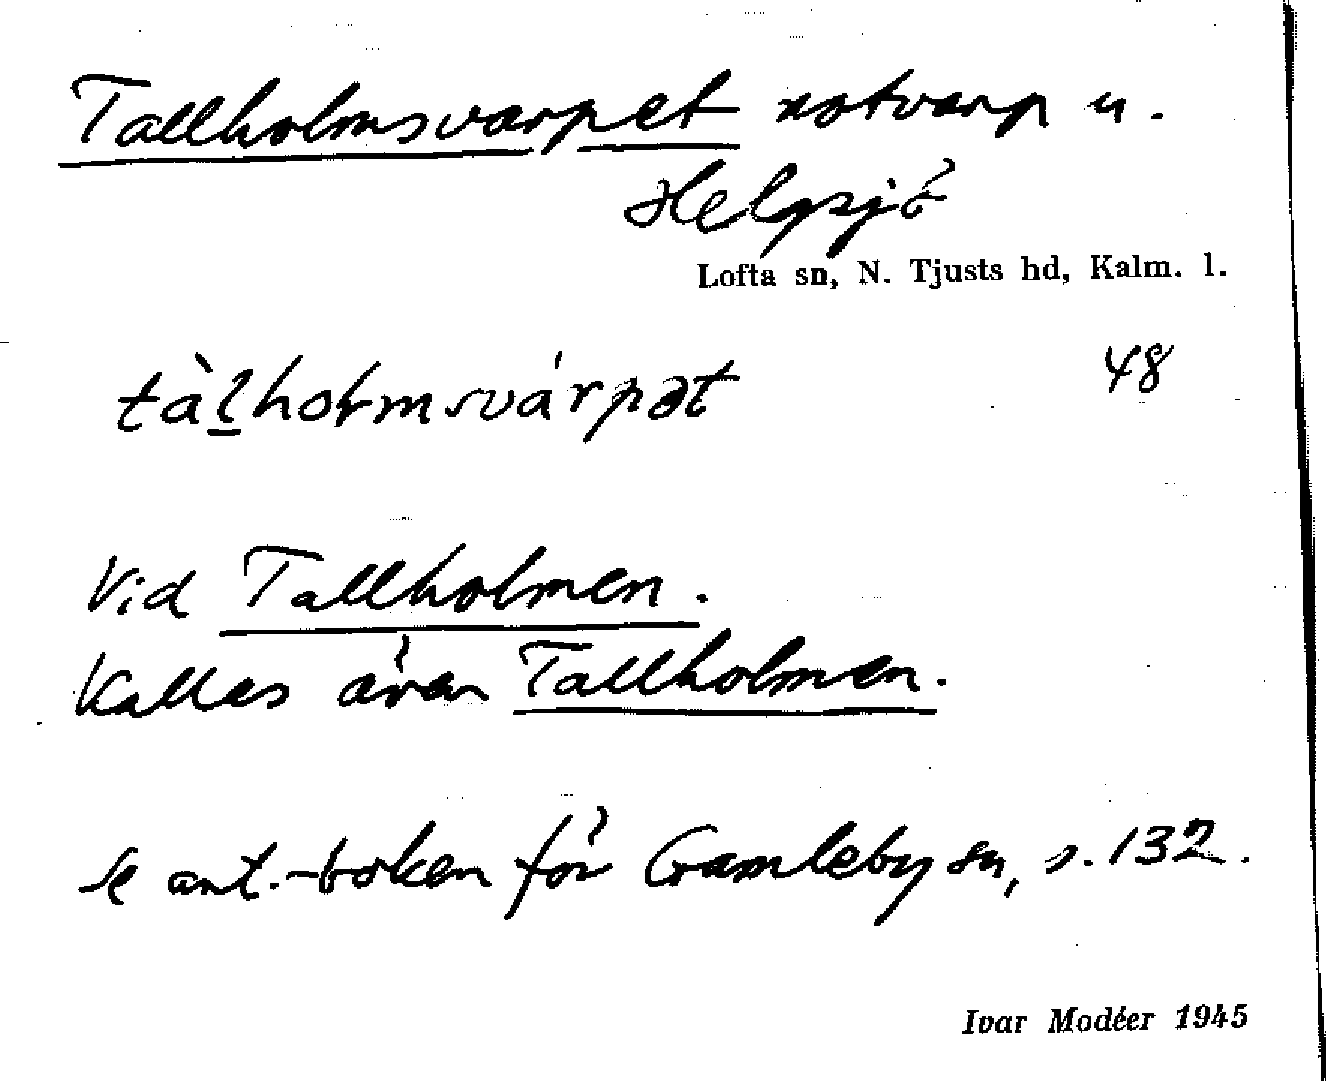 Tallholmsvarpet notvarp u.
Helgsjö
Lofta sn, N. Tjusts hd, Kalm. l.
tàlholmsvárpət 48
Vid Tallholmen.
Kallas även Tallholmen.
Se ant.-boken för Gamleby sn, s. 132.
Ivar Modéer 1945